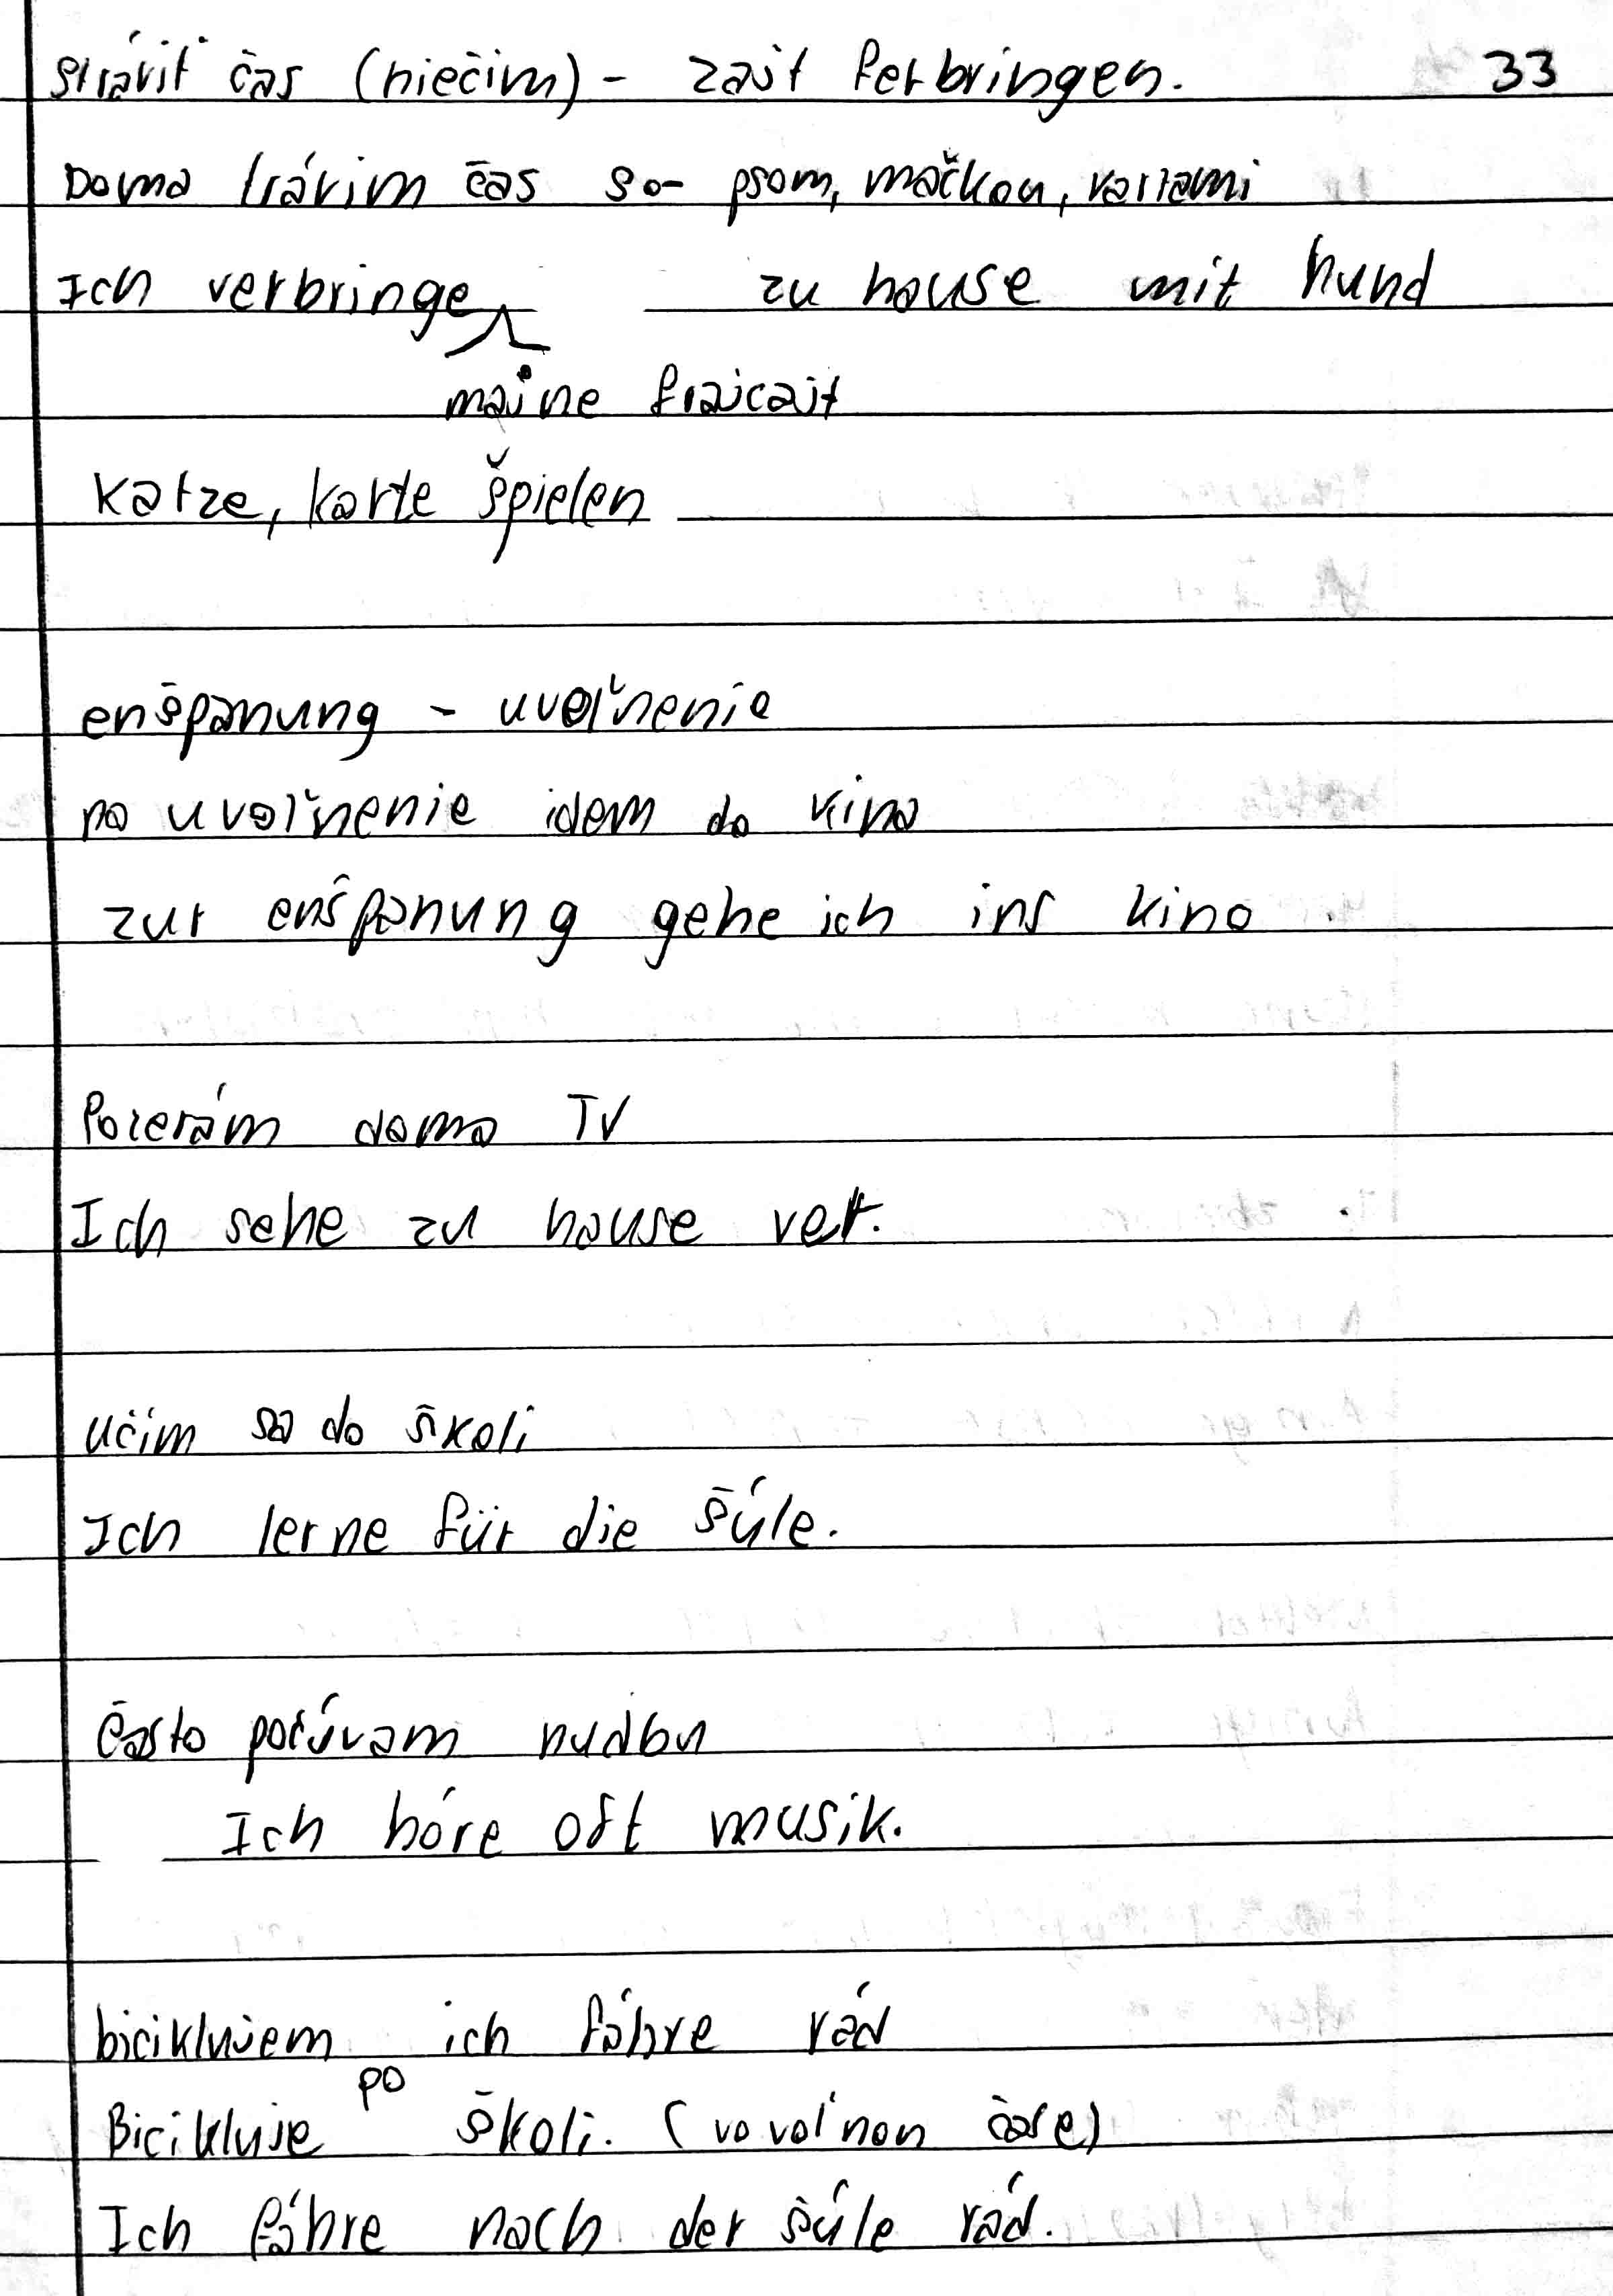 stráviť čas (niečim) - zajt ferbringen. 33
Doma trávim čas so- psom, mačkou, kartami
Ich verbringe zu house mit hund
majne frajcajt
Katze, karte špielen
enšpanung - uvoľnenie
na uvoľnenie idem do kina
zur enšpanung gehe ich ins kino
Pozerám doma TV
Ich sehe zu house
učim sa do školi
Ich lerne für die šúle.
často počúvam hudbu
Ich hóre oft musik.
biciklujem ich fáhre rád
po
Bicikluje školi. (vo voľnon čase)
Ich fáhre nach der šúle rád.